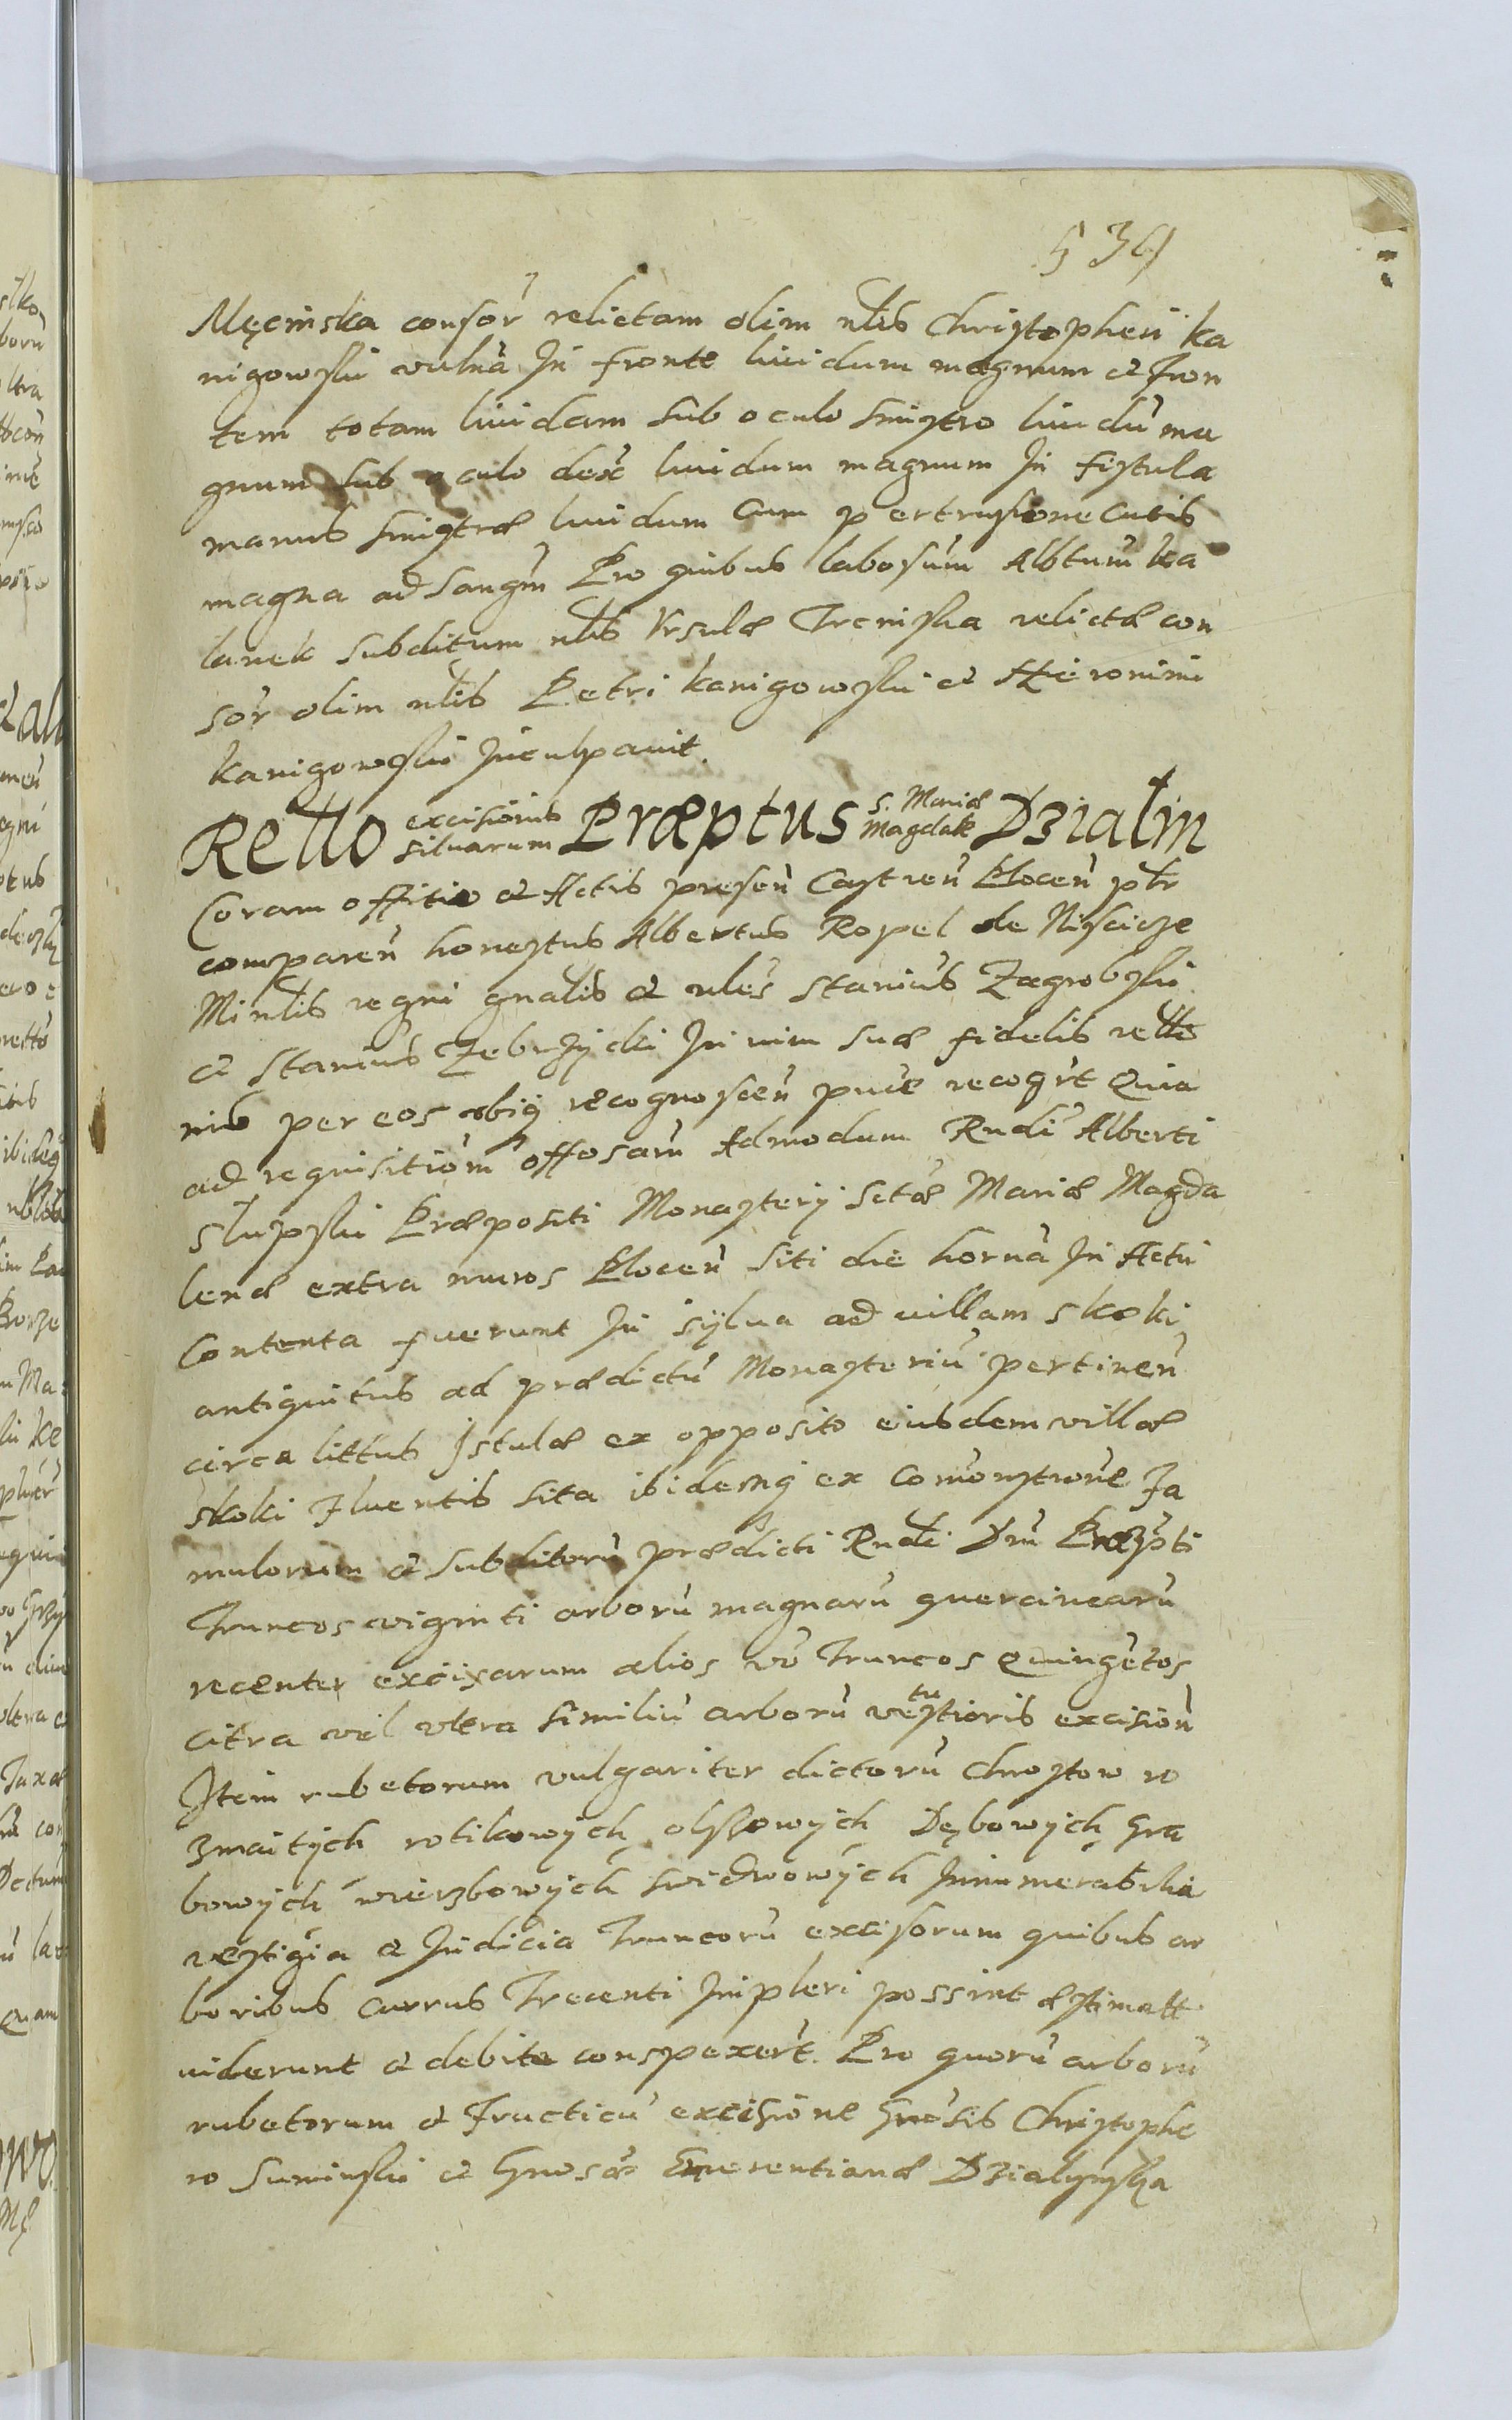 539
Męcinska consor̃ relictam olim nlis Christopheri Ka
nigowski vulna In fronte liuidum magnum et fron
tem totam liuidam sub oculo sinistro liuidũ ma
gnum sub oculo dex̃ liuidum magnum In fistula
manus sinistræ liuidum cum pertrusione cutis
magna ad sangm̃ Pro quibus labosum Albtum ka
lanek subditum nlis Vrsulæ Trcinska relictæ con
sor̃ olim nlis Petri Kanigowski et Hieronimi
Kanigowski Inculpauit.
Retto excisionis siluarum Præptus S. Mariæ Magdalæ Dzialin
Coram offitio et Actis presen̄ Castren̄ Plocen̄ ptr
comparen̄ honestus Albertus Ropel de Nisczice
Minlis regni gnalis et nles Stanius Zagrobski
et Stanius Zebrzycki In vim suæ fidelis retto
nis per eos obiq recognoscen̄ puce recogrt Quia
ad requisitiom̄ offosam̄ Admodum Rndi Alberti
Slupski Præpositi Monasterij Sctæ Mariæ Magda
lenæ extra muros Plocen̄ siti die horna In Actu
Contenta fuerunt In sylua ad uillam Skoki
antiquitus ad prædictũ Monasteriũ pertinen̄
circa littus Istulæ ex opposito eiusdem villæ
Skoki fluentis sita ibidemq ex Comonstrone fa
mulorum et subditorũ prædicti Rndi Dni Præpti
Truncos viginti arborũ magnarũ quercinearũ
recenter excisarum alios vo Truncos Quingetos
citra vel vltra similiũ arborũ vetustioris excision̄
Item rubetorum vulgariter dictorũ Chrostow ro
zmaitych rotikowych olszowych Dębowych Gra
bowych wierzbowych swidwowych Innumerabilia
vestigia et Indicia Truncorũ excisorum quibus ar
boribus currus Trecenti Impleri possint æstimatt
uiderunt et debite conspexert. Pro quorũ arborũ
rubetorum et fructicũ excisione Gnesis Christophe
ro Suminski et Gnosæ Emerentianæ Dzialynska